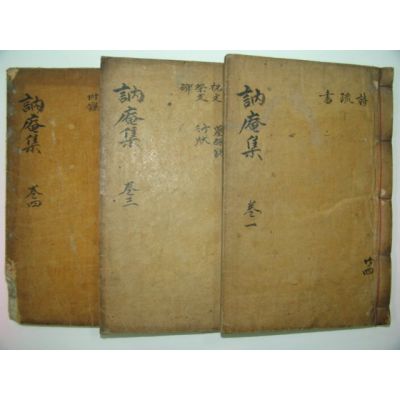 詩疏書
訥庵集 卷一
祝文
祭文 行狀
碑
訥庵集 卷三
附錄
訥庵集 卷四